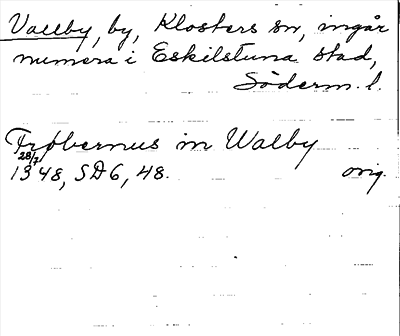 Vallby, by, Klosters sn, ingår
numera i Eskilstuna stad,
Söderm. l.
Frøbernus in Walby
28/7
1348, SD6, 48. orig.